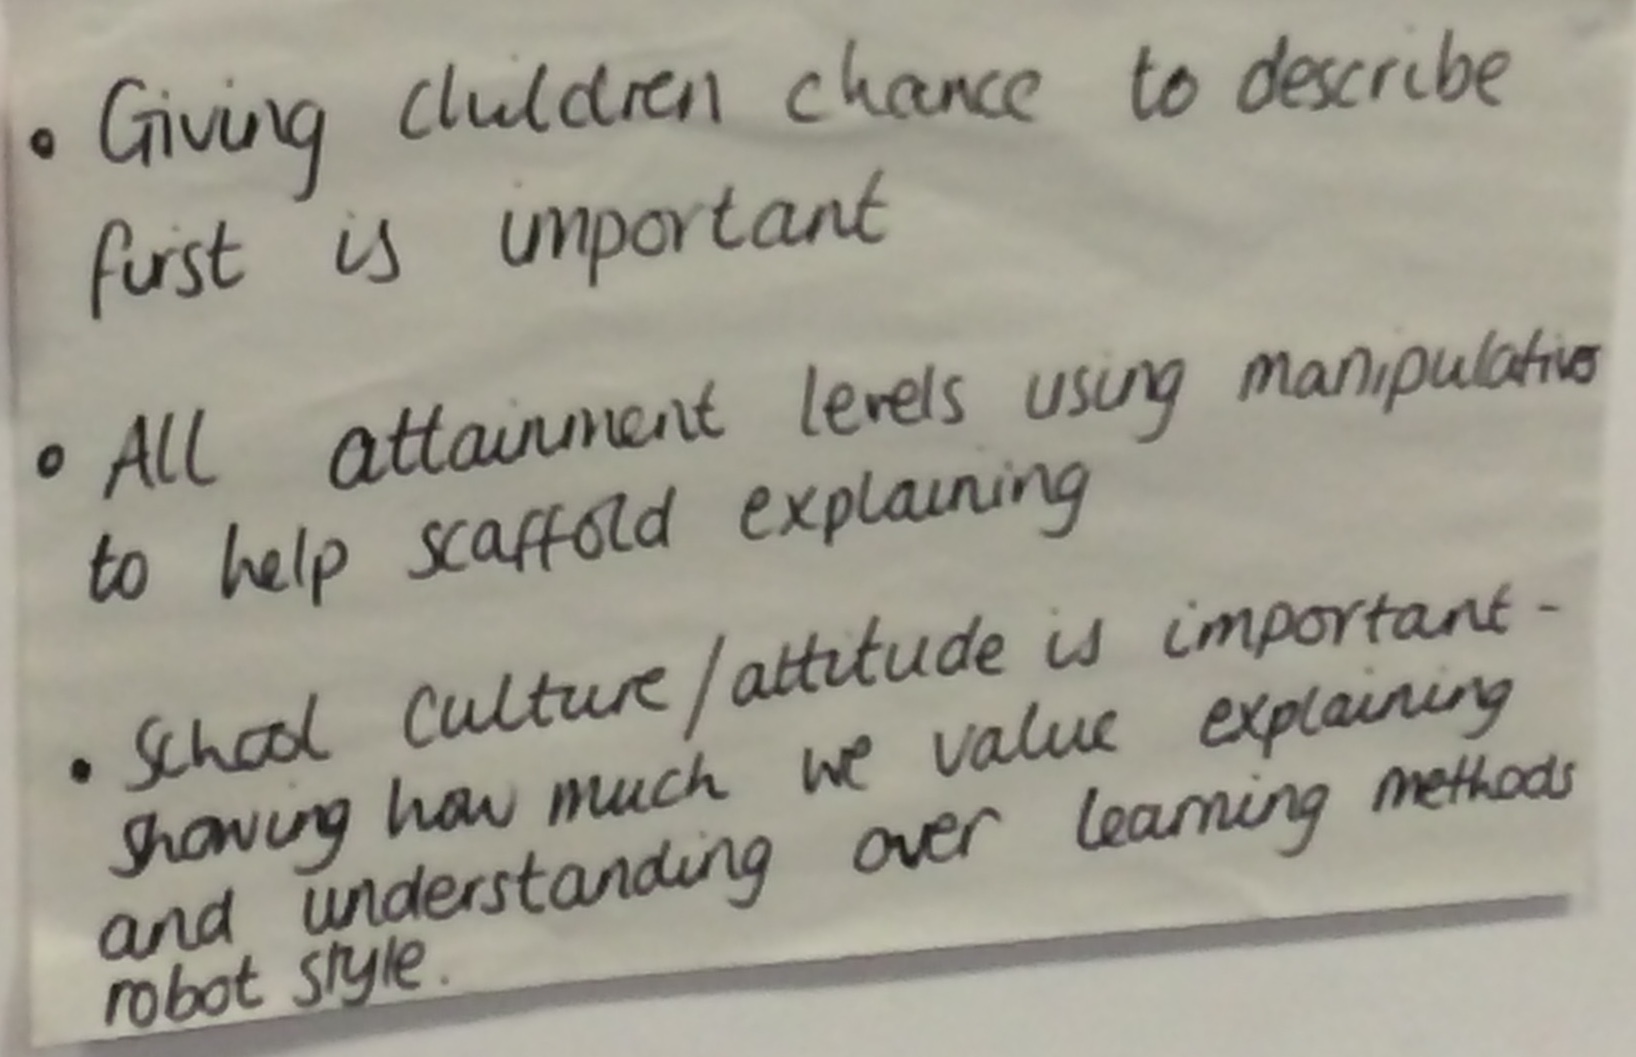 • Giving children chance to describe
first is important
• All attainment levels using manipulatives
to help scaffold explaining
• School culture/attitude is important -
showing how much we value explaining
and understanding over learning methods
robot style.